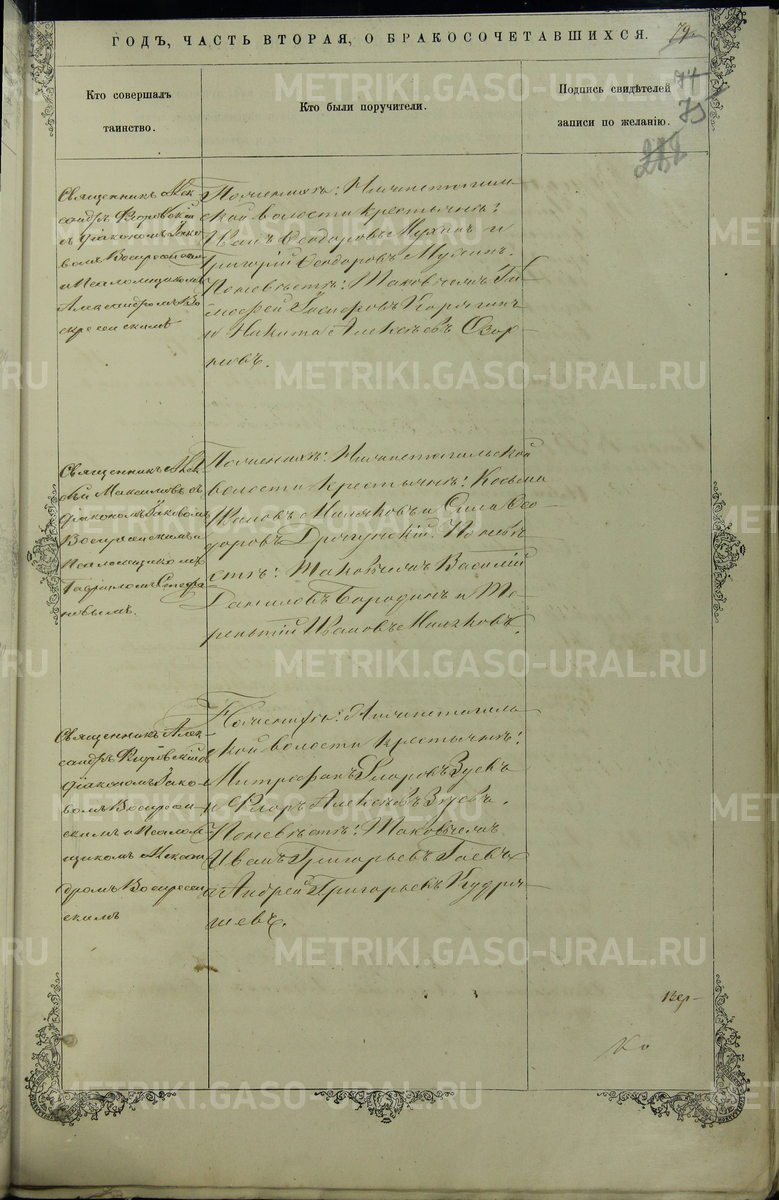 79
ГОДЪ, ЧАСТЬ ВТОРАЯ, О БРАКОСОЧЕТАВШИХСЯ.
Кто совершалъ
таинство.
Кто были поручители.
Подпись свидѣтелей
записи по желанію.
77
75
Священникъ Алек-
сандръ
съ діакономъ Іако-
вомъ Воскресенскимъ
и Псаломщикомъ
Александромъ Во-
скресенскимъ
По женихѣ: Нижнетагиль-
ской волости крестьяне:
Иванъ Ѳеодоровъ Мухинъ и
Григорій Ѳеодоровъ Мухинъ.
По невѣстѣ: Таковыежъ Ти-
моѳей
и Никита Алексѣевъ
Священникъ Алек-
сѣй Максимовъ съ
діакономъ Іаковомъ
Воскресенскимъ и
Псаломщикомъ
Гавріиломъ Стефа-
новымъ.
По женихѣ: Нижнетагильской
волости крестьяне: Козьма
Ивановъ Маляковъ и Сила Ѳео-
доровъ По невѣ-
стѣ: Таковыежъ Василій
Даниловъ Бородинъ и Те-
рентій Ивановъ Маляковъ.
Священникъ Алек-
сандръ съ
діакономъ Іако-
вомъ Воскресен-
скимъ и Псалом-
щикомъ Алексан-
дромъ Воскресен-
скимъ
По женихѣ: Нижнетагиль-
ской волости крестьяне:
Митрофанъ Флоровъ Зуевъ
и Флоръ Алексѣевъ Зуевъ.
По невѣстѣ: Таковыежъ
Иванъ Григорьевъ Гаевъ
и Андрей Григорьевъ Кудря-
шевъ.
METRIKI.GASO-URAL.RU